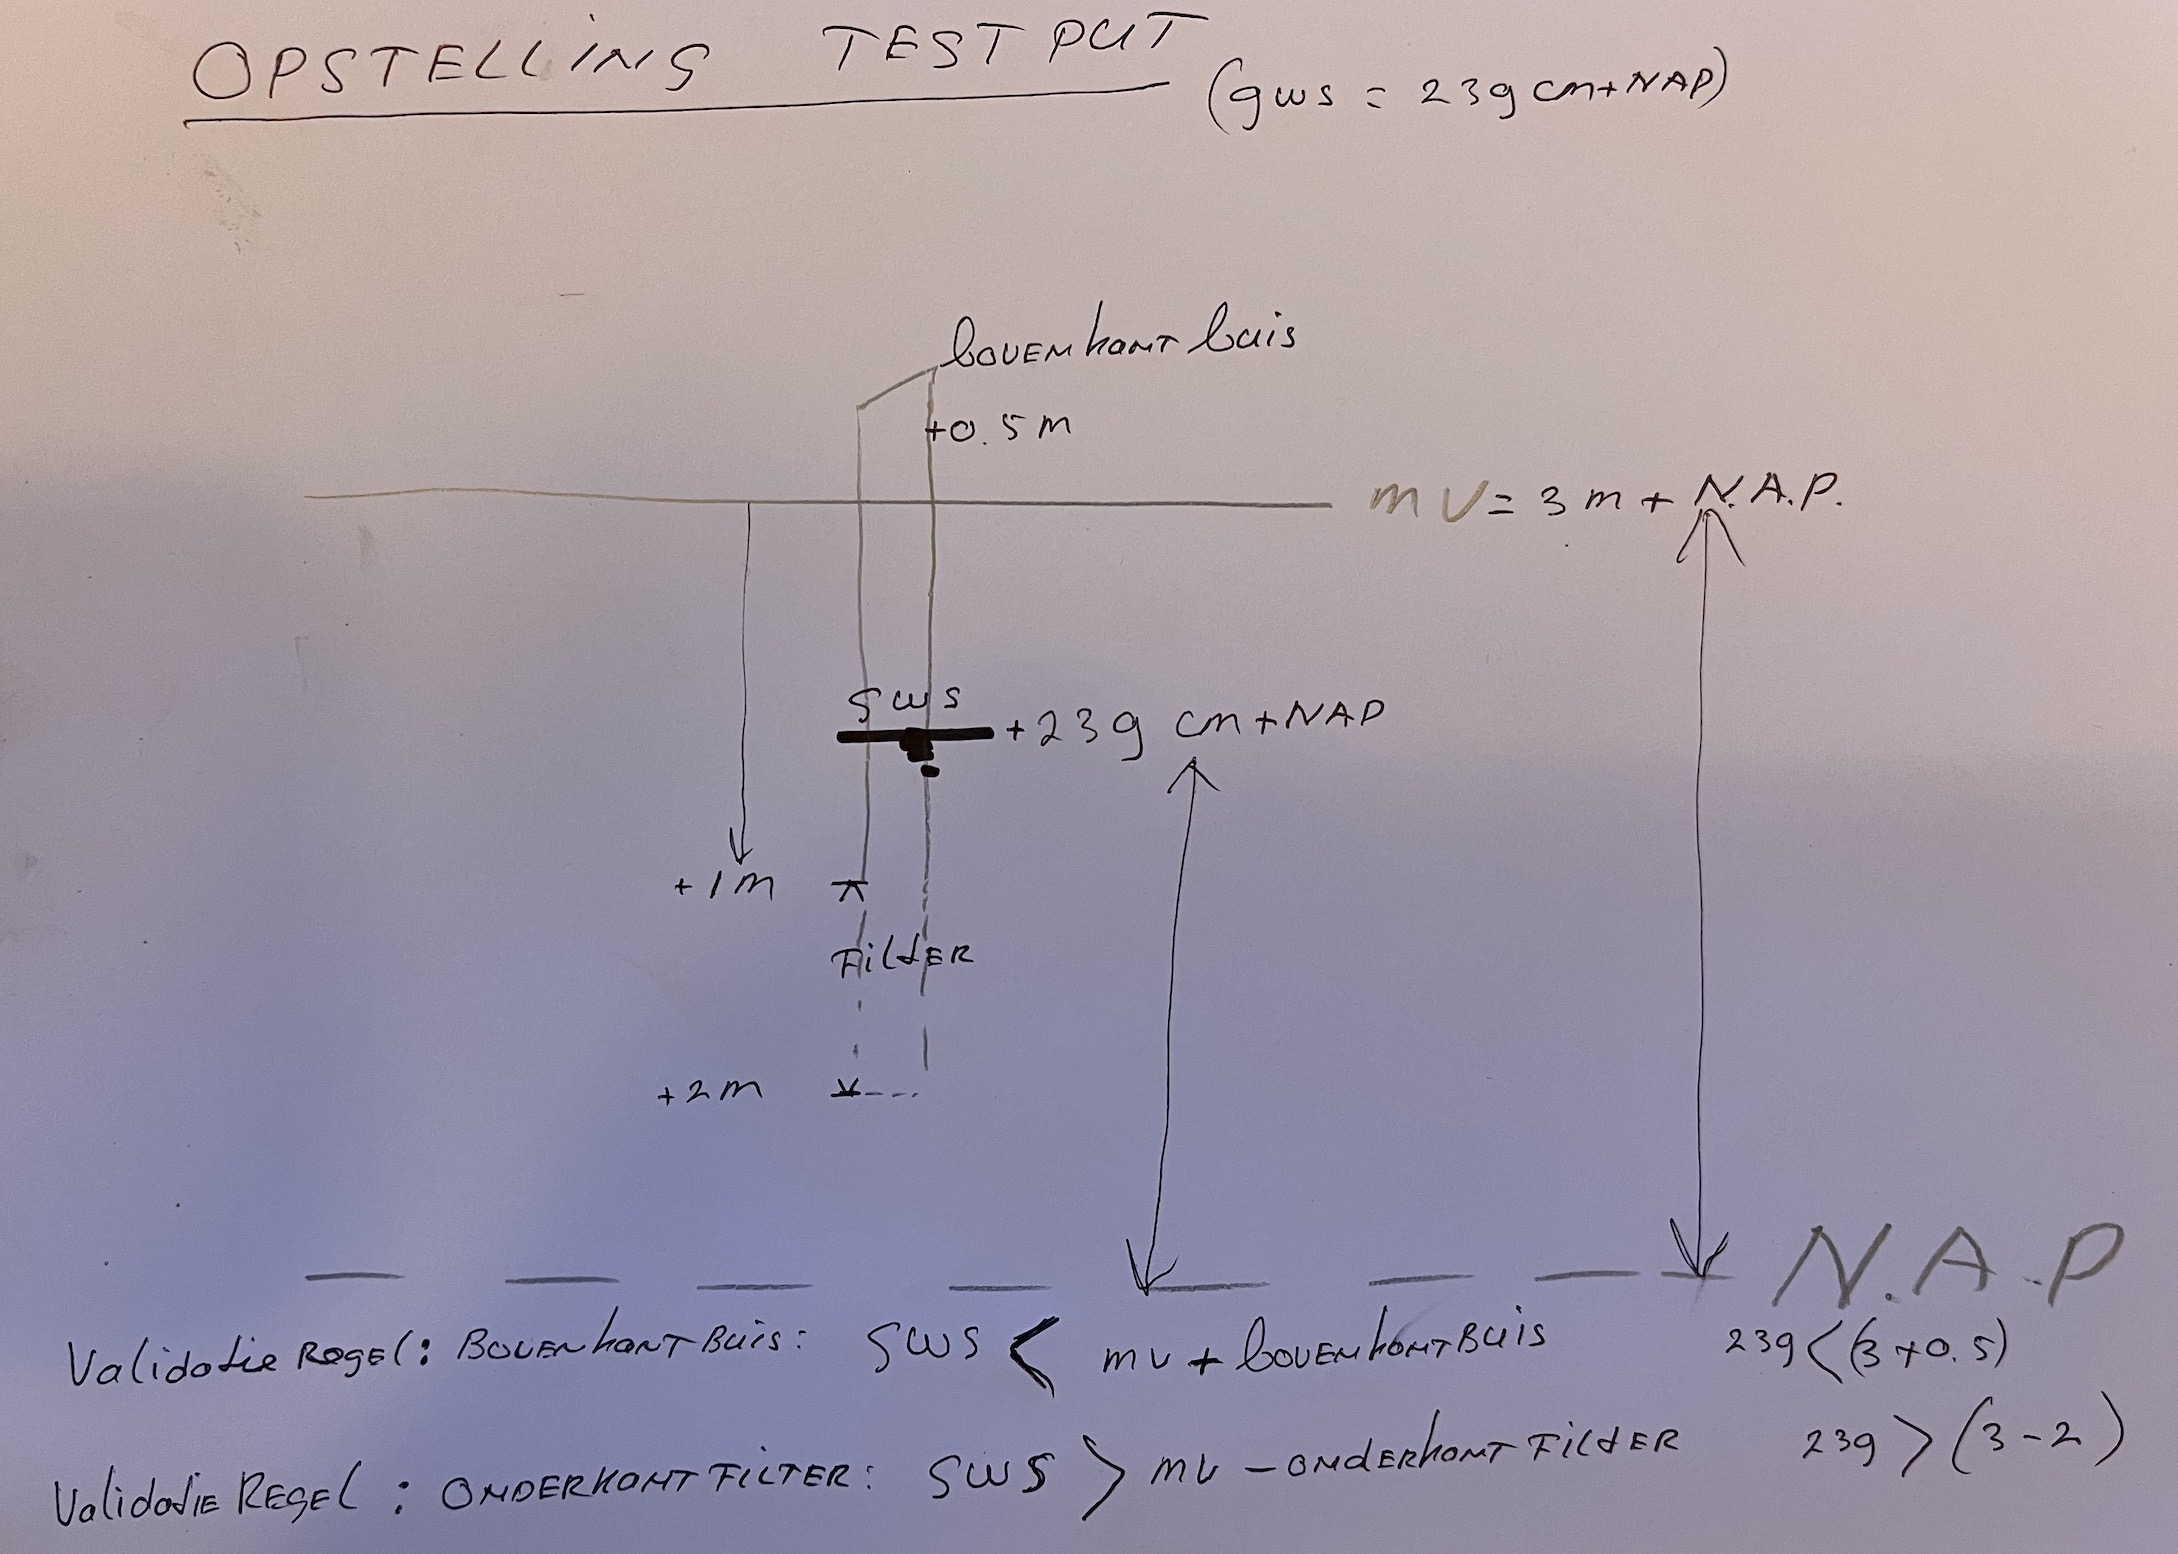 OPSTELLING TESTPUT
(gws = 239 cm+NAP)
bovenkant buis
+0.5 m
mv = 3 m + N.A.P.
gws
+239 cm+NAP
+1m
Filter
+2m
N.A.P
Validatie Regel: Bovenkant Buis: gws < mv + bovenkant Buis 239 < (3+0.5)
Validatie Regel: ONDERKANT FILTER: gws > mv - onderkant Filter 239 > (3-2)